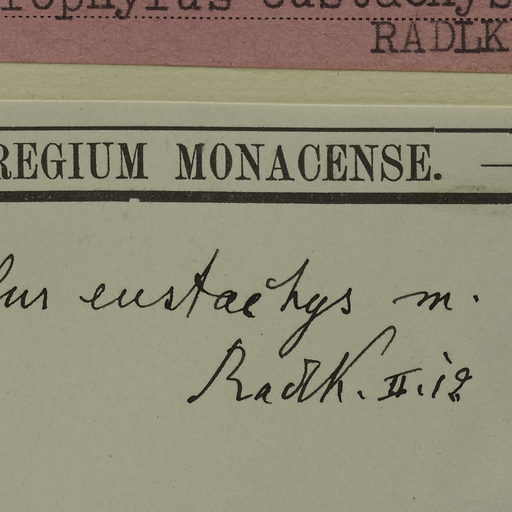 rophylus eustachys
RADLK
REGIUM MONACENSE. —
lus eustachys m.
Radlk. II.12